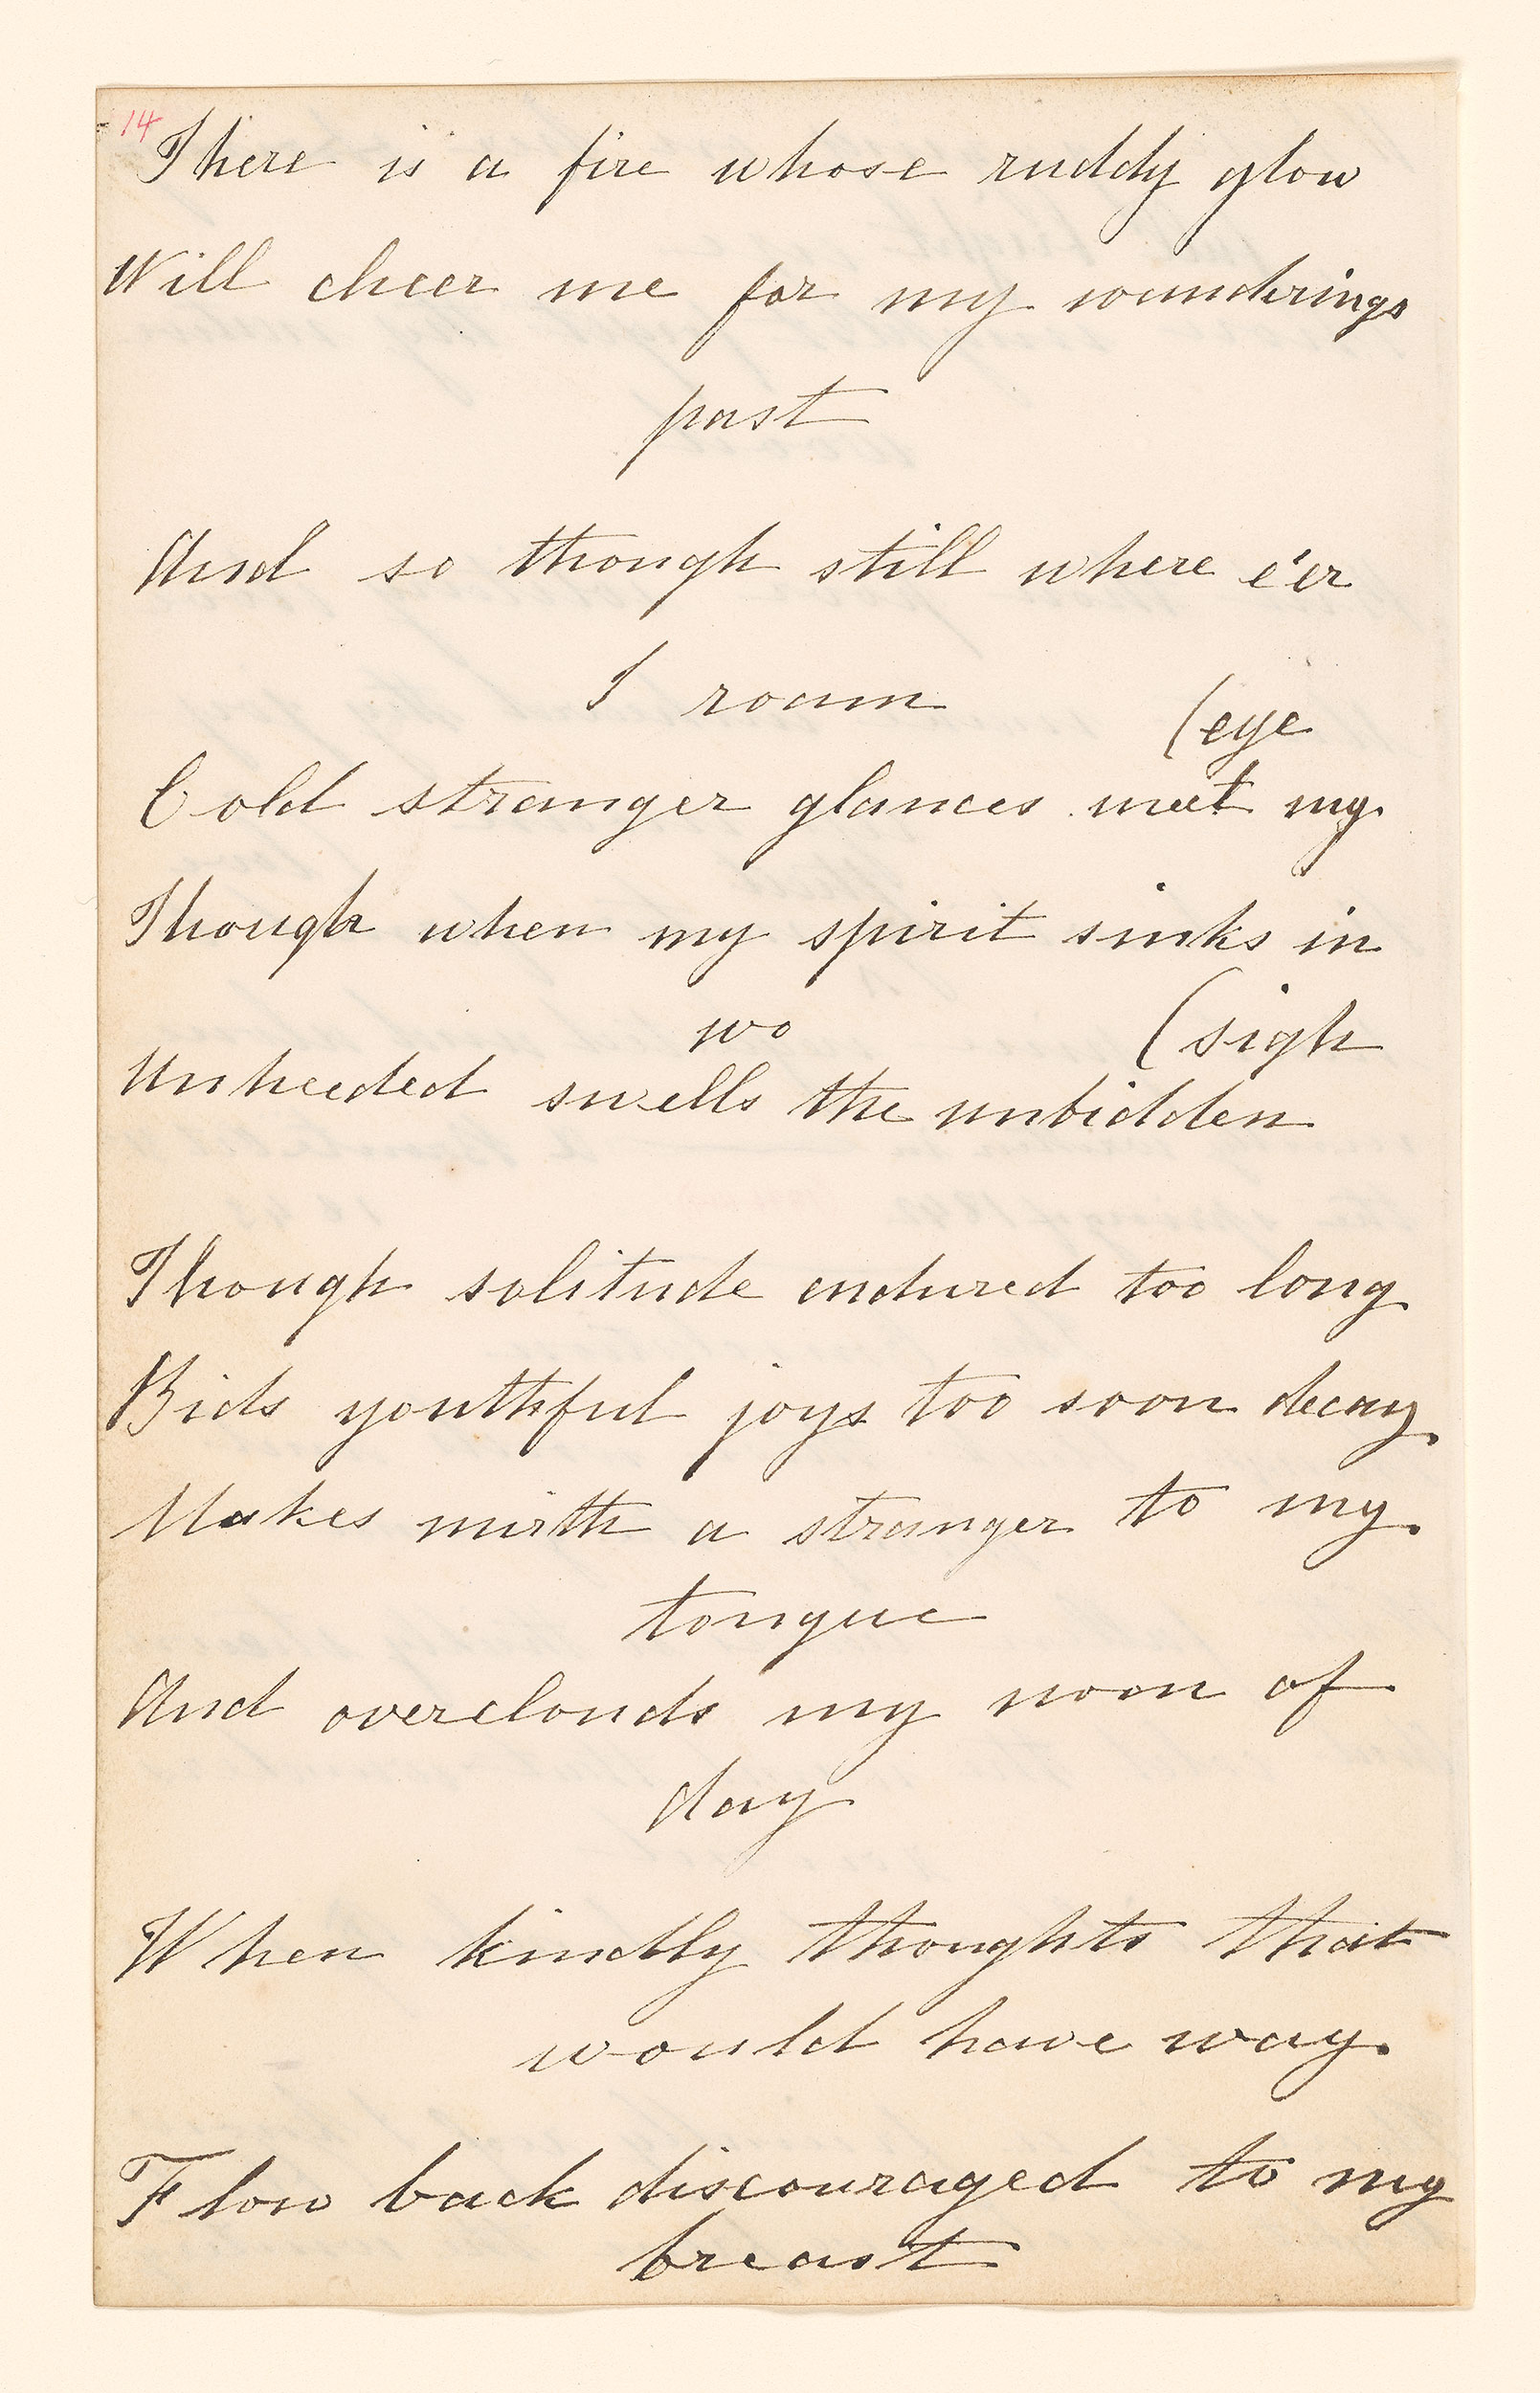 14
There is a fire whose ruddy glow
Will cheer me for my wanderings
past
And so though still where e'er
I roam
(eye
Cold stranger glances meet my
Though when my spirit sinks in
wo
(sigh
Unheeded swells the unbidden
Though solitude endured too long
Bids youthful joys too soon decay.
Makes mirth a stranger to my.
tongue
And overclouds my noon of
day
When kindly thoughts that
would have way.
Flow back discouraged to my
breast